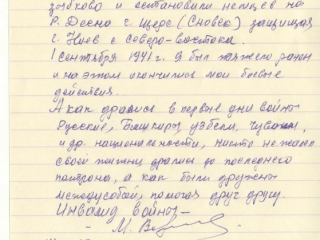 зыбково и остановили немцев на
р. Десна г. Щорс (Сновск) защищая
г. Киев с северо-востока.
1 сентября 1941 г. Я был тяжело ранен
и на этом окончились мои боевые
действия.
А как дрались в первые дни войны
Русские, Башкиры, узбеки, чуваши,
и др. национальности, никто не жалел
своей жизни дрались до последнего
патрона, а как были дружны
между собой, помогая друг другу.
Инвалид войны —
М.